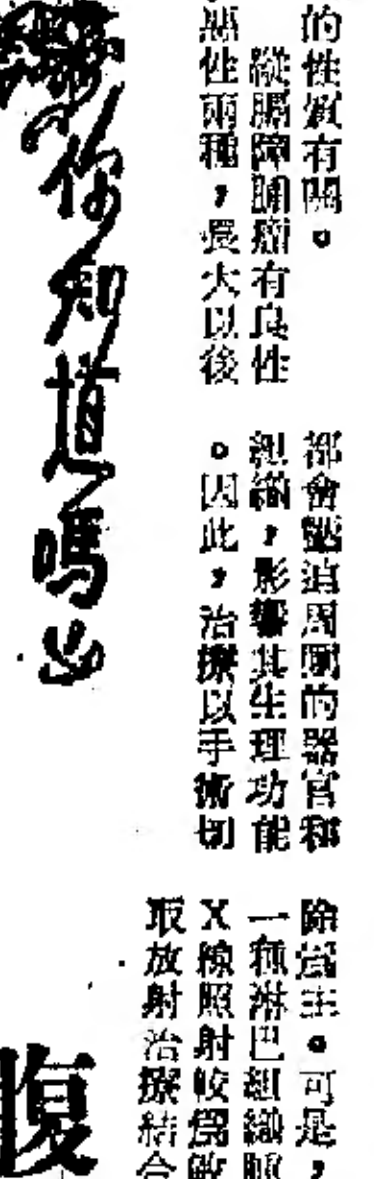 的性質有關。
縱膈障腫瘤有良性
惡性兩種，長大以後
都會壓迫周圍的器官和
組織，影響其生理功能
。因此，治療以手術切
除為主。可是，
一種淋巴組織腫
X線照射較為敏
取放射治療結合
你知道嗎
腹